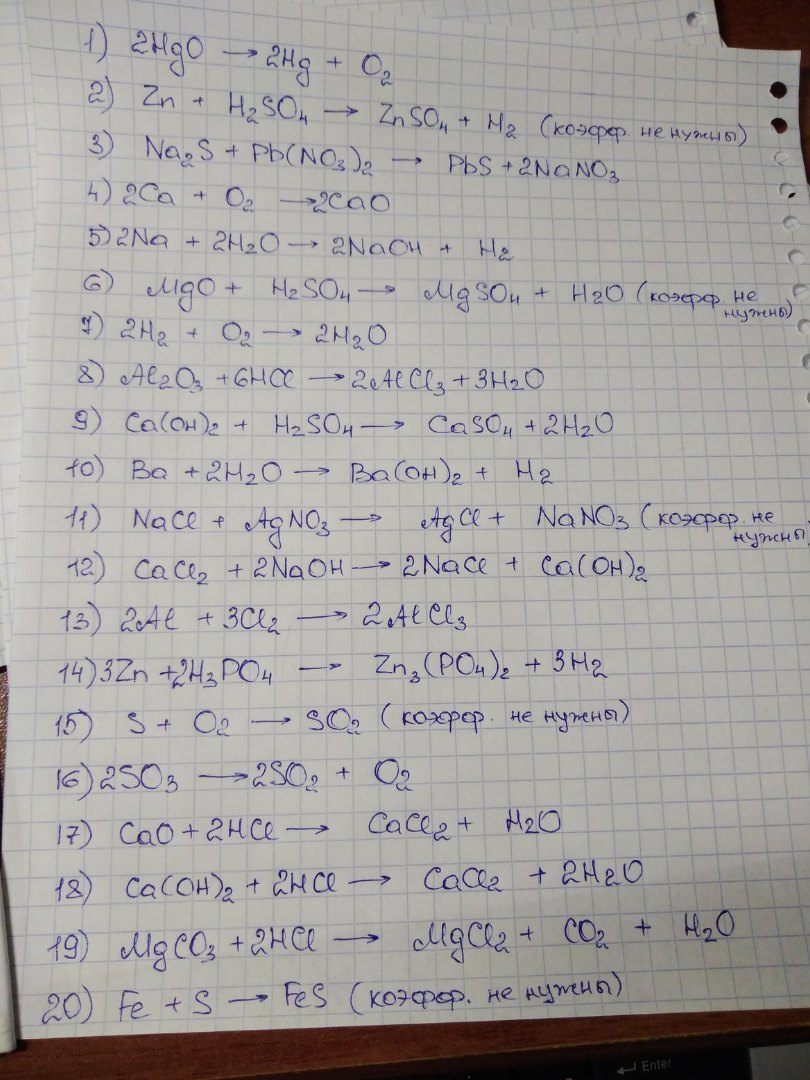 1) 2HgO → 2Hg + O2
2) Zn + H2SO4 → ZnSO4 + H2 (коэфф. не нужны)
3) Na2S + Pb(NO3)2 → PbS + 2NaNO3
4) 2Ca + O2 → 2CaO
5) 2Na + 2H2O → 2NaOH + H2
6) MgO + H2SO4 → MgSO4 + H2O (коэфф. не
нужны)
7) 2H2 + O2 → 2H2O
8) Al2O3 + 6HCl → 2AlCl3 + 3H2O
9) Ca(OH)2 + H2SO4 → CaSO4 + 2H2O
10) Ba + 2H2O → Ba(OH)2 + H2
11) NaCl + AgNO3 → AgCl + NaNO3 (коэфф. не
нужны)
12) CaCl2 + 2NaOH → 2NaCl + Ca(OH)2
13) 2Al + 3Cl2 → 2AlCl3
14) 3Zn + 2H3PO4 → Zn3(PO4)2 + 3H2
15) S + O2 → SO2 (коэфф. не нужны)
16) 2SO3 → 2SO2 + O2
17) CaO + 2HCl → CaCl2 + H2O
18) Ca(OH)2 + 2HCl → CaCl2 + 2H2O
19) MgCO3 + 2HCl → MgCl2 + CO2 + H2O
20) Fe + S → FeS (коэфф. не нужны)
Enter